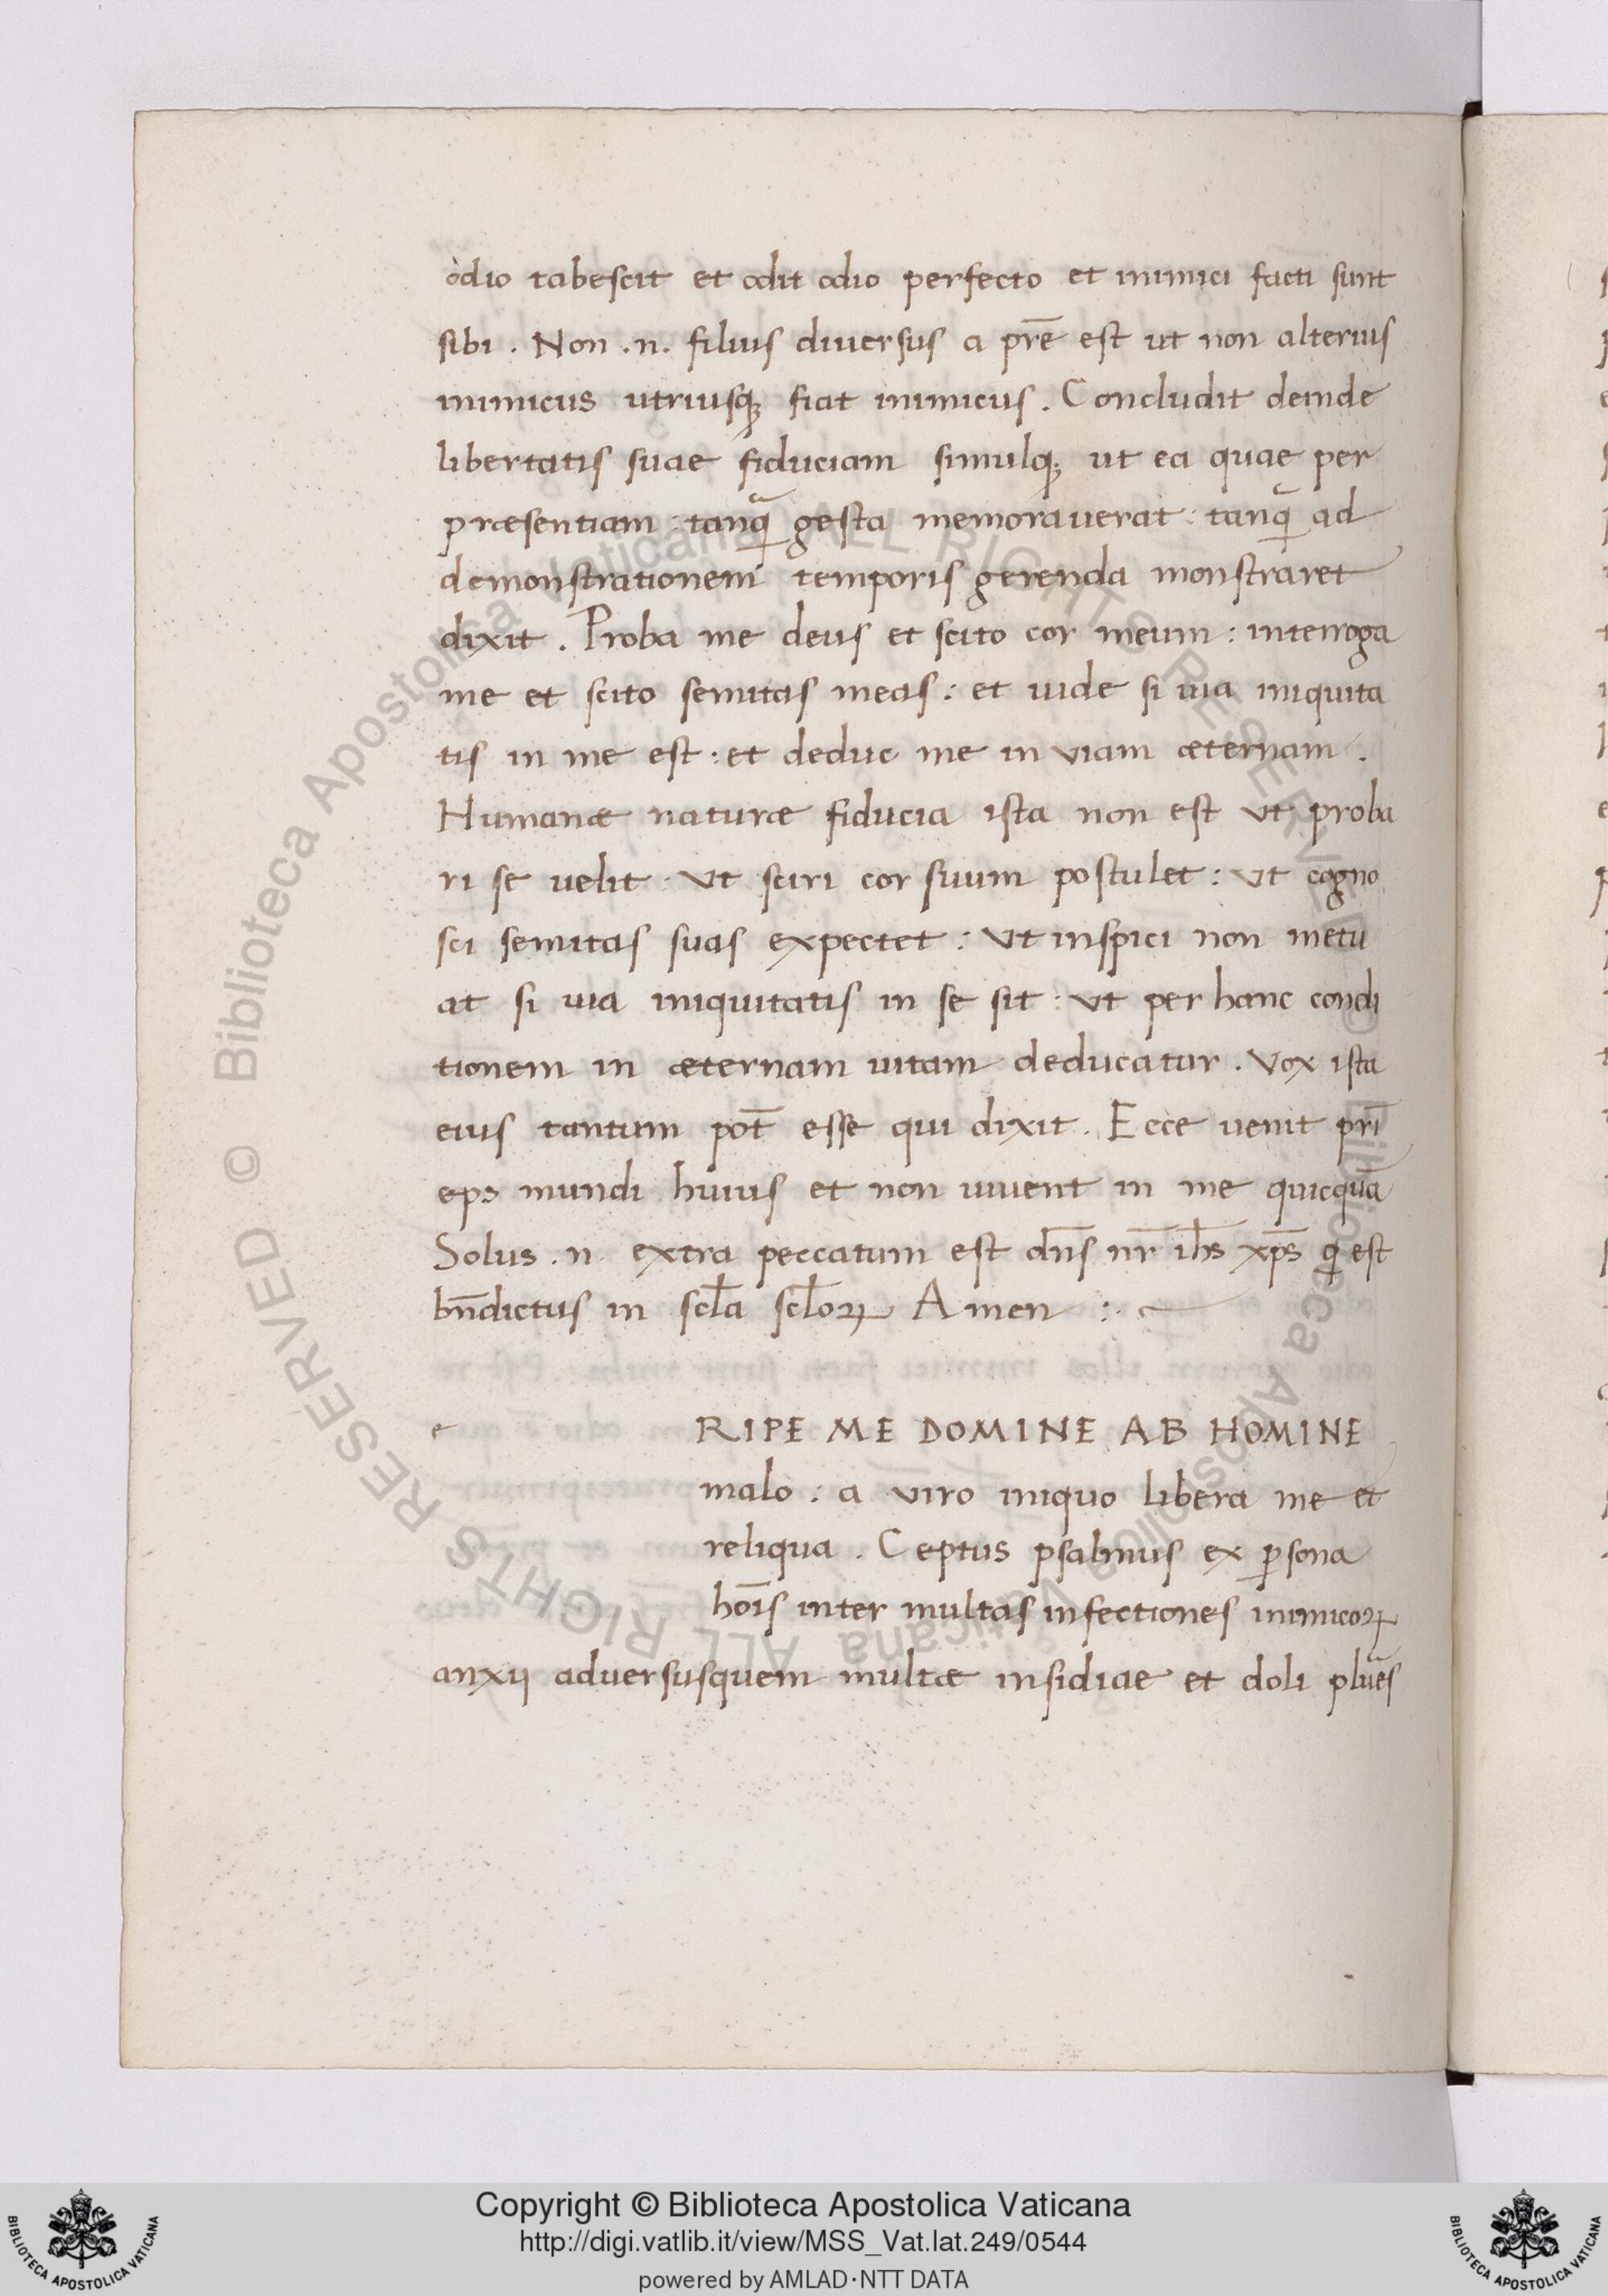 odio tabescit et odit odio perfecto et inimici facti sunt
sibi . Non .n. filius diuersus a pr̄e est ut non alterius
inimicus utriusq; fiat inimicus . Concludit deinde
libertatis suae fiduciam simulq; ut ea quae per
præsentiam : tanq̃ gesta memorauerat : tanq̃ ad
demonstrationem temporis gerenda monstraret
dixit . Proba me deus et scito cor meum : interroga
me et scito semitas meas : et uide si uia iniquita
tis in me est : et deduc me in viam æternam .
Humanæ naturæ fiducia ista non est vt proba
ri se uelit : vt sciri cor suum postulet : vt cogno
sci semitas suas expectet : vt inspici non metu
at si uia iniquitatis in se sit : vt per hanc condi
tionem in æternam uitam deducatur . Vox ista
eius tantum pot̄ esse qui dixit . Ecce uenit pri̅
eps mundi huius et non uiuent in me quicquā
Solus .n. extra peccatum est dn̄s nr̄ ih̄s xp̄s q̣ est
bn̄dictus in scl̄a scl̄oꝝ Amen :
e RIPE ME DOMINE AB HOMINE
malo : a viro iniquo libera me et
reliqua . Ceptus psalmus ex ꝑsona
hoīs inter multas infectiones inimicoꝝ
anxij aduersusquem multæ insidiae et doli plūes
Copyright © Biblioteca Apostolica Vaticana
http://digi.vatlib.it/view/MSS_Vat.lat.249/0544
powered by AMLAD·NTT DATA
BIBLIOTECA APOSTOLICA VATICANA
BIBLIOTECA APOSTOLICA VATICANA
© Biblioteca Apostolica Vaticana ALL RIGHTS RESERVED
© Biblioteca Apostolica Vaticana ALL RIGHTS RESERVED